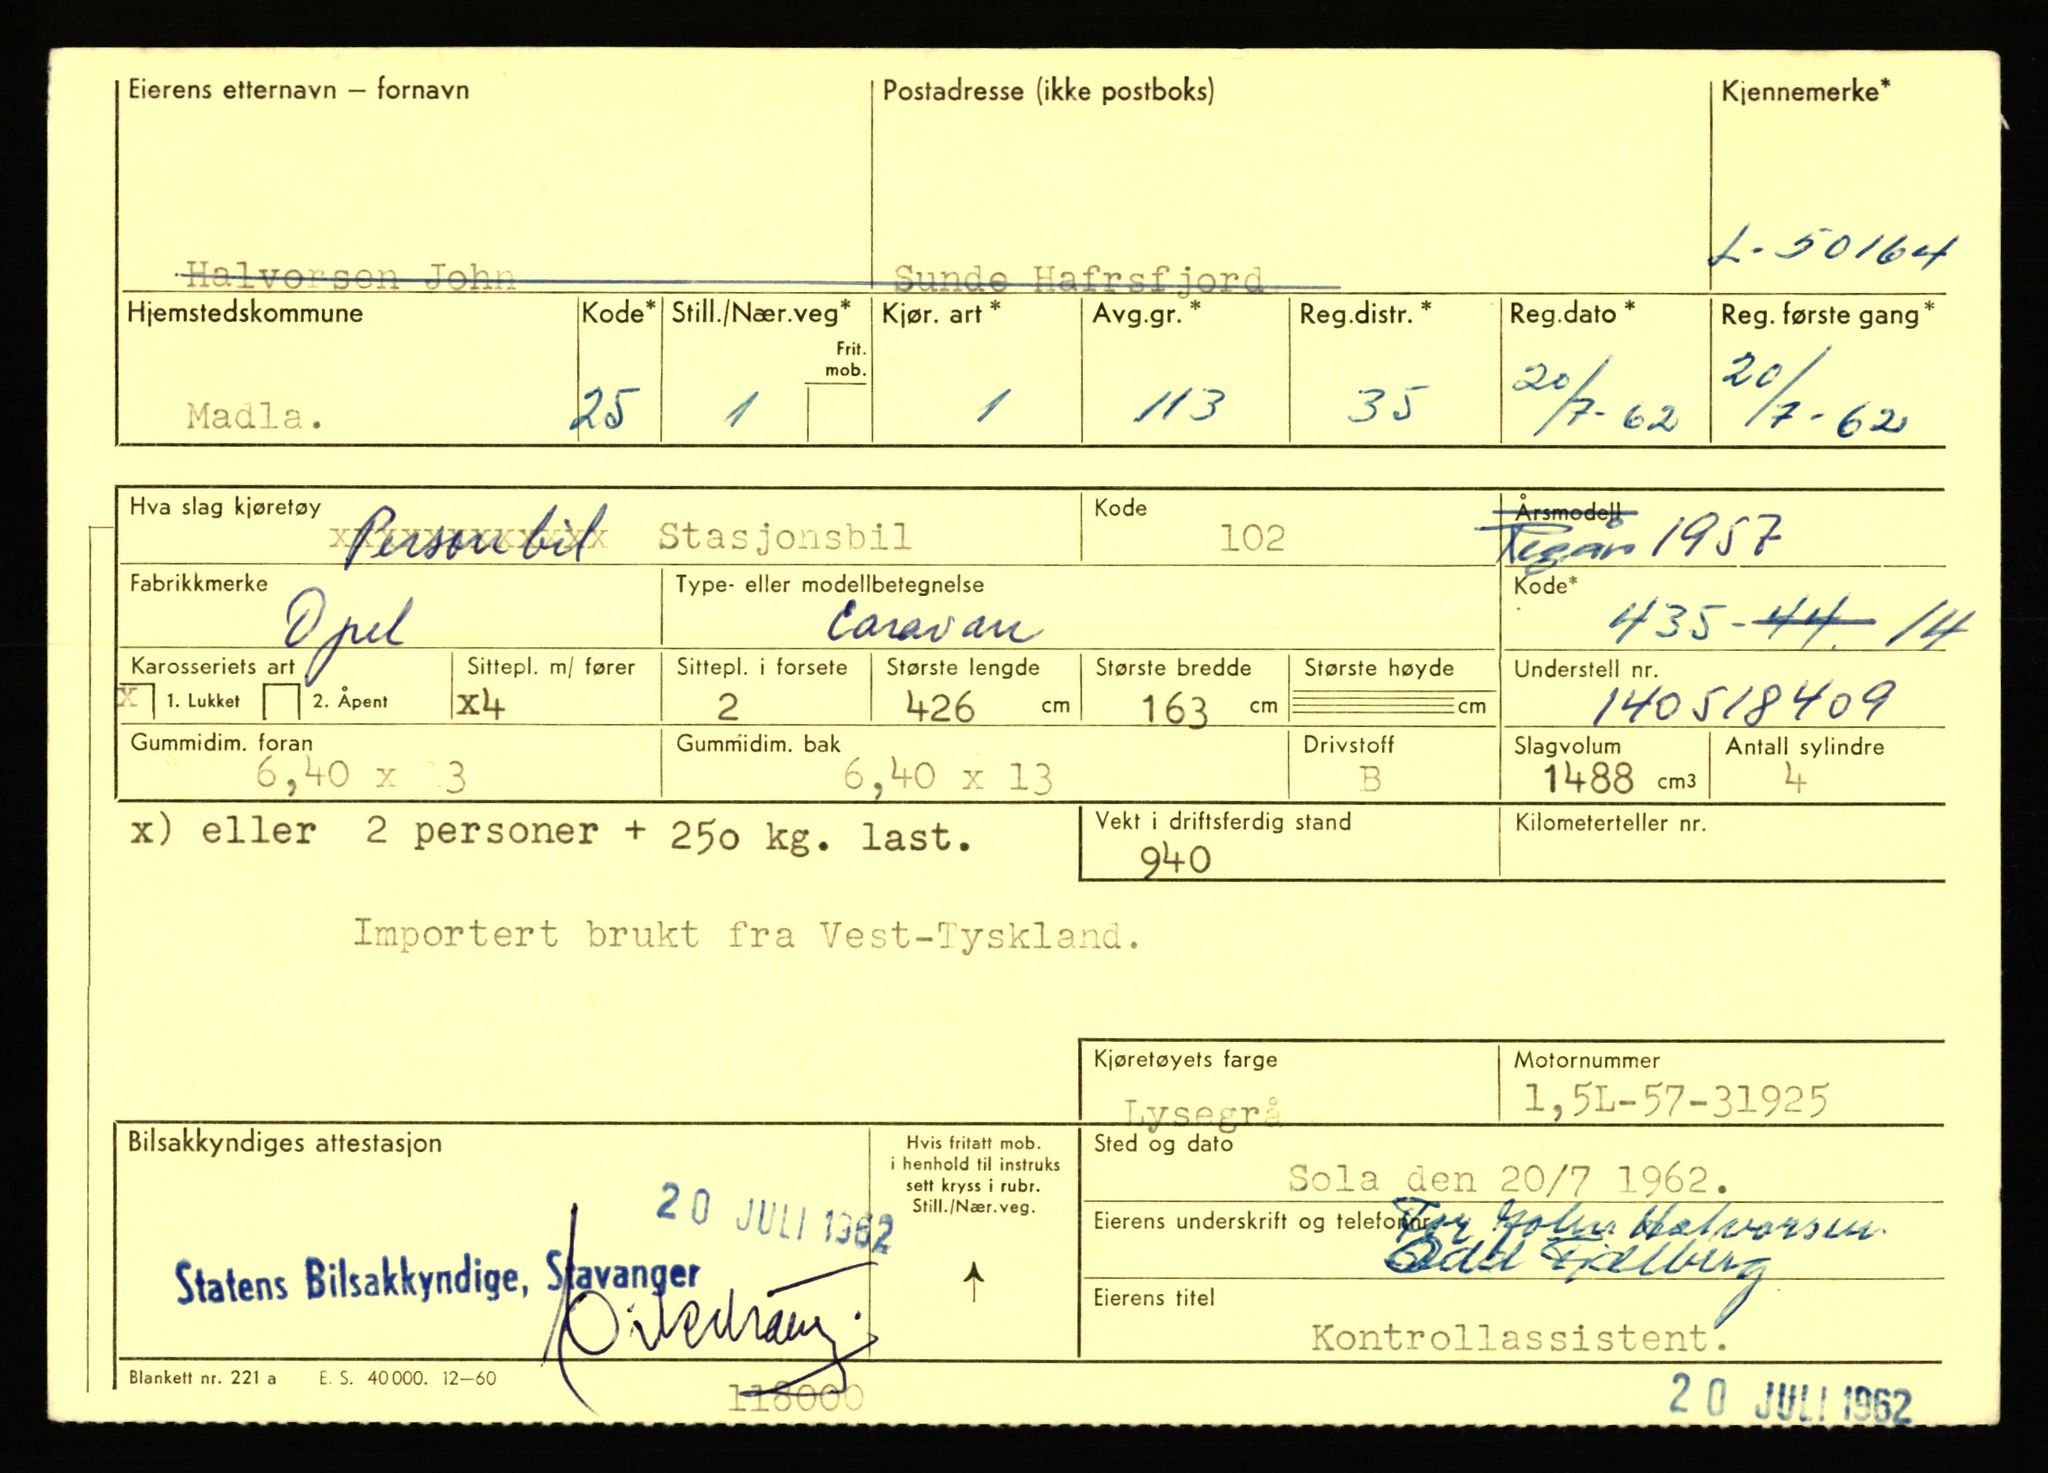 Eierens etternavn – fornavn Postadresse (ikke postboks) Kjennemerke*
L-50164
Halvorsen John Sunde Hafrsfjord
Hjemstedskommune Kode* Still./Nær.veg* Kjør. art* Avg.gr.* Reg.distr.* Reg.dato* Reg. første gang*
Frit. mob.
Madla. 25 1 1 113 35 20/7-62 20/7-62
Hva slag kjøretøy Kode Årsmodell
xxxxxxxxxxxx Personbil Stasjonsbil 102 1957
Fabrikkmerke Type- eller modellbetegnelse Kode*
Opel Caravan 435-44. 14
Karosseriets art Sittepl. m/ fører Sittepl. i forsete Største lengde Største bredde Største høyde Understell nr.
x 1. Lukket 2. Åpent x4 2 426 cm 163 cm cm 140518409
Gummidim. foran Gummidim. bak Drivstoff Slagvolum Antall sylindre
6,40 x 13 6,40 x 13 B 1488 cm3 4
x) eller 2 personer + 250 kg. last. Vekt i driftsferdig stand Kilometerteller nr.
940
Importert brukt fra Vest-Tyskland.
Kjøretøyets farge Motornummer
Lysegrå 1,5L-57-31925
Bilsakkyndiges attestasjon Hvis fritatt mob. Sted og dato
i henhold til instruks
sett kryss i rubr. Sola den 20/7 1962.
Still./Nær.veg.
20 JULI 1962 Eierens underskrift og telefonnr For John Halvorsen
Statens Bilsakkyndige, Stavanger Odd Fjelberg
Eierens titel
Kontrollassistent.
Blankett nr. 221 a E. S. 40 000. 12–60
118000 20 JULI 1962